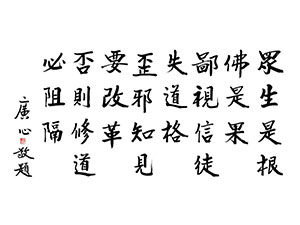 眾生是根
佛是果
鄙視信徒
失道格
歪邪知見
要改革
否則修道
必阻隔
廣心敬題